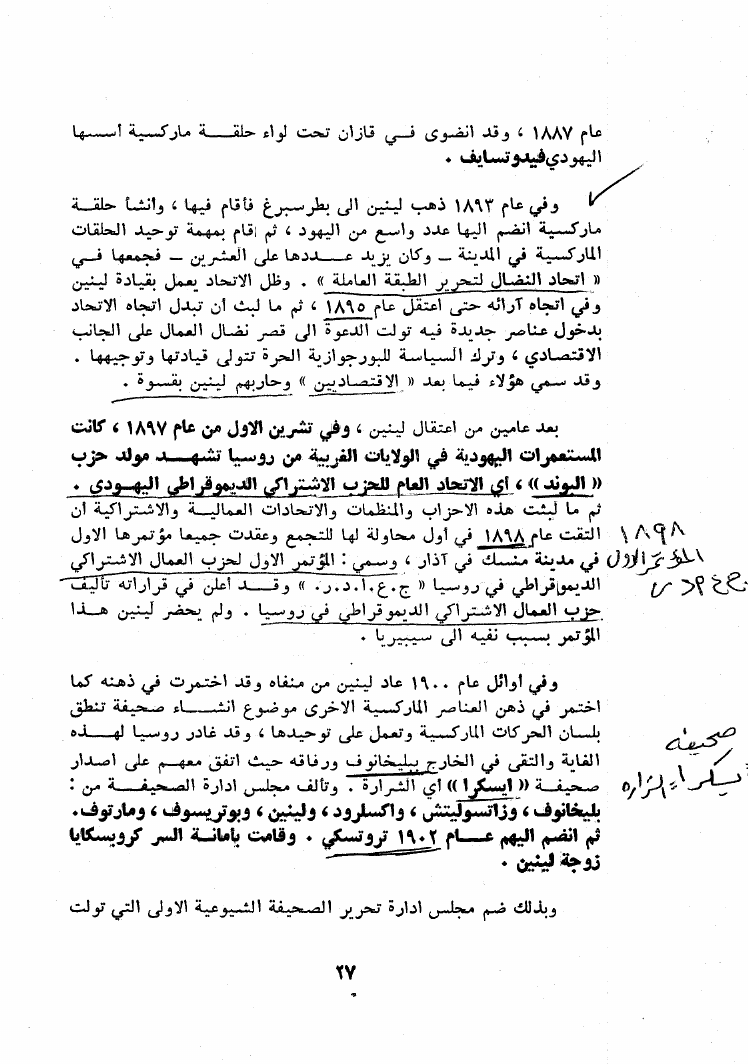 عام ١٨٨٧ ، وقد انضوى فــي قازان تحت لواء حلقـــة ماركسية أسسها
اليهودي فيدوتسايف .
وفي عام ١٨٩٣ ذهب لينين الى بطرسبرغ فأقام فيها ، وانشأ حلقــة
ماركسية انضم اليها عدد واسع من اليهود ، ثم اقام بمهمة توحيد الحلقات
الماركسية في المدينة ــ وكان يزيد عــددها على العشرين ــ فجمعها فــي
« اتحاد النضال لتحرير الطبقة العاملة » . وظل الاتحاد يعمل بقيادة لينين
وفي اتجاه آرائه حتى اعتقل عام ١٨٩٥ ، ثم ما لبث أن تبدل اتجاه الاتحاد
بدخول عناصر جديدة فيه تولت الدعوة الى قصر نضال العمال على الجانب
الاقتصادي ، وترك السياسة للبورجوازية الحرة تتولى قيادتها وتوجيهها .
وقد سمي هؤلاء فيما بعد « الاقتصاديين » وحاربهم لينين بقسوة .
بعد عامين من اعتقال لينين ، وفي تشرين الاول من عام ١٨٩٧ ، كانت
المستعمرات اليهودية في الولايات الغربية من روسيا تشهــد مولد حزب
« البوند » ، أي الاتحاد العام للحزب الاشتراكي الديموقراطي اليهودي .
ثم ما لبثت هذه الاحزاب والمنظمات والاتحادات العماليــة والاشتراكية ان
التقت عام ١٨٩٨ في أول محاولة لها للتجمع وعقدت جميعا مؤتمرها الاول
في مدينة منسك في آذار ، وسمي : المؤتمر الاول لحزب العمال الاشتراكي
الديموقراطي في روسيا « ح.ع.ا.د.ر. » وقـــد أعلن في قراراته تأليف
حزب العمال الاشتراكي الديموقراطي في روسيا . ولم يحضر لينين هــذا
المؤتمر بسبب نفيه الى سيبيريا .
١٨٩٨
المؤتمر الاول
وفي اوائل عام ١٩٠٠ عاد لينين من منفاه وقد اختمرت في ذهنه كما
اختمر في ذهن العناصر الماركسية الاخرى موضوع انشـــاء صحيفة تنطق
بلسان الحركات الماركسية وتعمل على توحيدها ، وقد غادر روسيا لهــذه
الغاية والتقى في الخارج ببليخانوف ورفاقه حيث اتفق معهــم على اصدار
صحيفــة « ايسكرا » أي الشرارة . وتألف مجلس ادارة الصحيفـــة من :
بليخانوف ، وزاتسوليتش ، واكسلرود ، ولينين ، وبوتريسوف ، ومارتوف.
ثم انضم اليهم عـــام ١٩٠٢ تروتسكي . وقامت بأمانــة السر كروبسكايا
زوجة لينين .
صحيفة
الشراره
وبذلك ضم مجلس ادارة تحرير الصحيفة الشيوعية الاولى التي تولت
٢٧